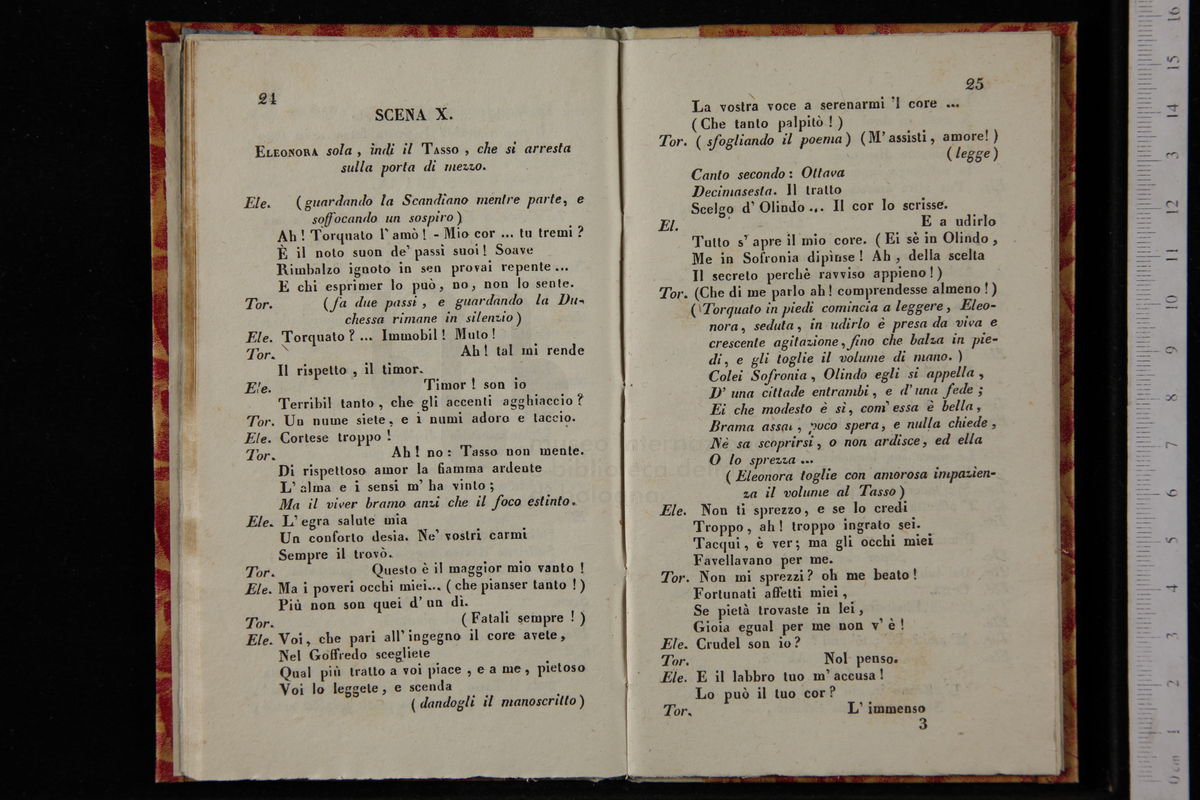 24
SCENA X.
ELEONORA sola, indi il TASSO, che si arresta
sulla porta di mezzo.
Ele. (guardando la Scandiano mentre parte, e
soffocando un sospiro)
Ah! Torquato l'amò! - Mio cor ... tu tremi?
È il noto suon de' passi suoi! Soave
Rimbalzo ignoto in sen provai repente...
E chi esprimer lo può, no, non lo sente.
Tor. (fa due passi, e guardando la Du-
chessa rimane in silenzio)
Ele. Torquato? ... Immobil! Muto!
Tor. Ah! tal mi rende
Il rispetto, il timor.
Ele. Timor! son io
Terribil tanto, che gli accenti agghiaccio?
Tor. Un nume siete, e i numi adoro e taccio.
Ele. Cortese troppo!
Tor. Ah! no: Tasso non mente.
Di rispettoso amor la fiamma ardente
L'alma e i sensi m'ha vinto;
Ma il viver bramo anzi che il foco estinto.
Ele. L'egra salute mia
Un conforto desia. Ne' vostri carmi
Sempre il trovò.
Tor. Questo è il maggior mio vanto!
Ele. Ma i poveri occhi miei... (che pianser tanto!)
Più non son quei d'un dì.
Tor. (Fatali sempre!)
Ele. Voi, che pari all'ingegno il core avete,
Nel Goffredo scegliete
Qual più tratto a voi piace, e a me, pietoso
Voi lo leggete, e scenda
(dandogli il manoscritto)
25
La vostra voce a serenarmi 'l core ...
(Che tanto palpitò!)
Tor. (sfogliando il poema) (M'assisti, amore!)
(legge)
Canto secondo: Ottava
Decimasesta. Il tratto
Scelgo d'Olindo ... Il cor lo scrisse.
El. E a udirlo
Tutto s'apre il mio core. (Ei sè in Olindo,
Me in Sofronia dipinse! Ah, della scelta
Il secreto perchè ravviso appieno!)
Tor. (Che di me parlo ah! comprendesse almeno!)
(Torquato in piedi comincia a leggere, Eleo-
nora, seduta, in udirlo è presa da viva e
crescente agitazione, fino che balza in pie-
di, e gli toglie il volume di mano.)
Colei Sofronia, Olindo egli si appella,
D'una cittade entrambi, e d'una fede;
Ei che modesto è sì, com'essa è bella,
Brama assai, poco spera, e nulla chiede,
Nè sa scoprirsi, o non ardisce, ed ella
O lo sprezza ...
(Eleonora toglie con amorosa impazien-
za il volume al Tasso)
Ele. Non ti sprezzo, e se lo credi
Troppo, ah! troppo ingrato sei.
Tacqui, è ver; ma gli occhi miei
Favellavano per me.
Tor. Non mi sprezzi? oh me beato!
Fortunati affetti miei,
Se pietà trovaste in lei,
Gioia egual per me non v'è!
Ele. Crudel son io?
Tor. Nol penso.
Ele. E il labbro tuo m'accusa!
Lo può il tuo cor?
Tor. L'immenso
3